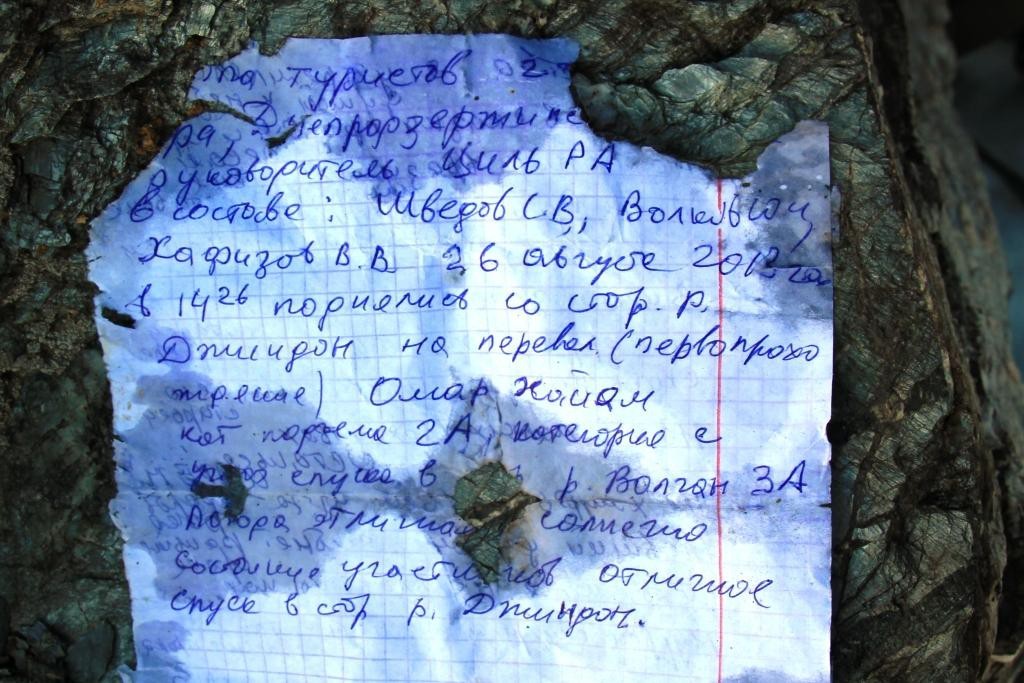 туристов
ра, Днепродзержинс
руководитель Циль РА
в составе: Шведов С.В,
Хафизов В.В 26 августа 2012 го
в 14 26 поднялись со стор. р.
Джиндон на перевал (первопрохо
ждение) Омар Хайам
кат подъема 2А, категория с
спуска в р. Волган 3А
отличная солнечно
Состояние участников отличное
Спуск в стор р. Джиндон.